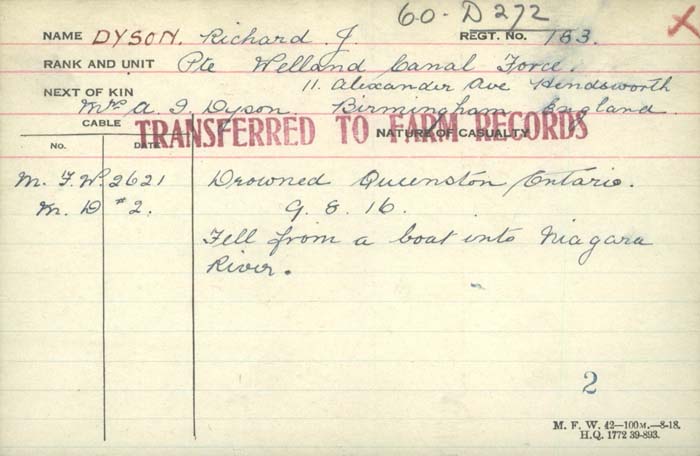 60-D272
NAME DYSON. Richard J. REGT. NO. 163.
RANK AND UNIT Pte Welland Canal Force.
NEXT OF KIN 11 Alexander Ave Hendsworth
Mrs A. J. Dyson. Birmingham England
CABLE NATURE OF CASUALTY
TRANSFERRED TO FARM RECORDS
NO. DATE
M. F. W. 2621 Drowned Queenston Ontario.
M. D #2. 9. 8. 16.
Fell from a boat into Niagara
River.
2
M. F. W. 42—100M.—8-18.
H.Q. 1772 39-893.